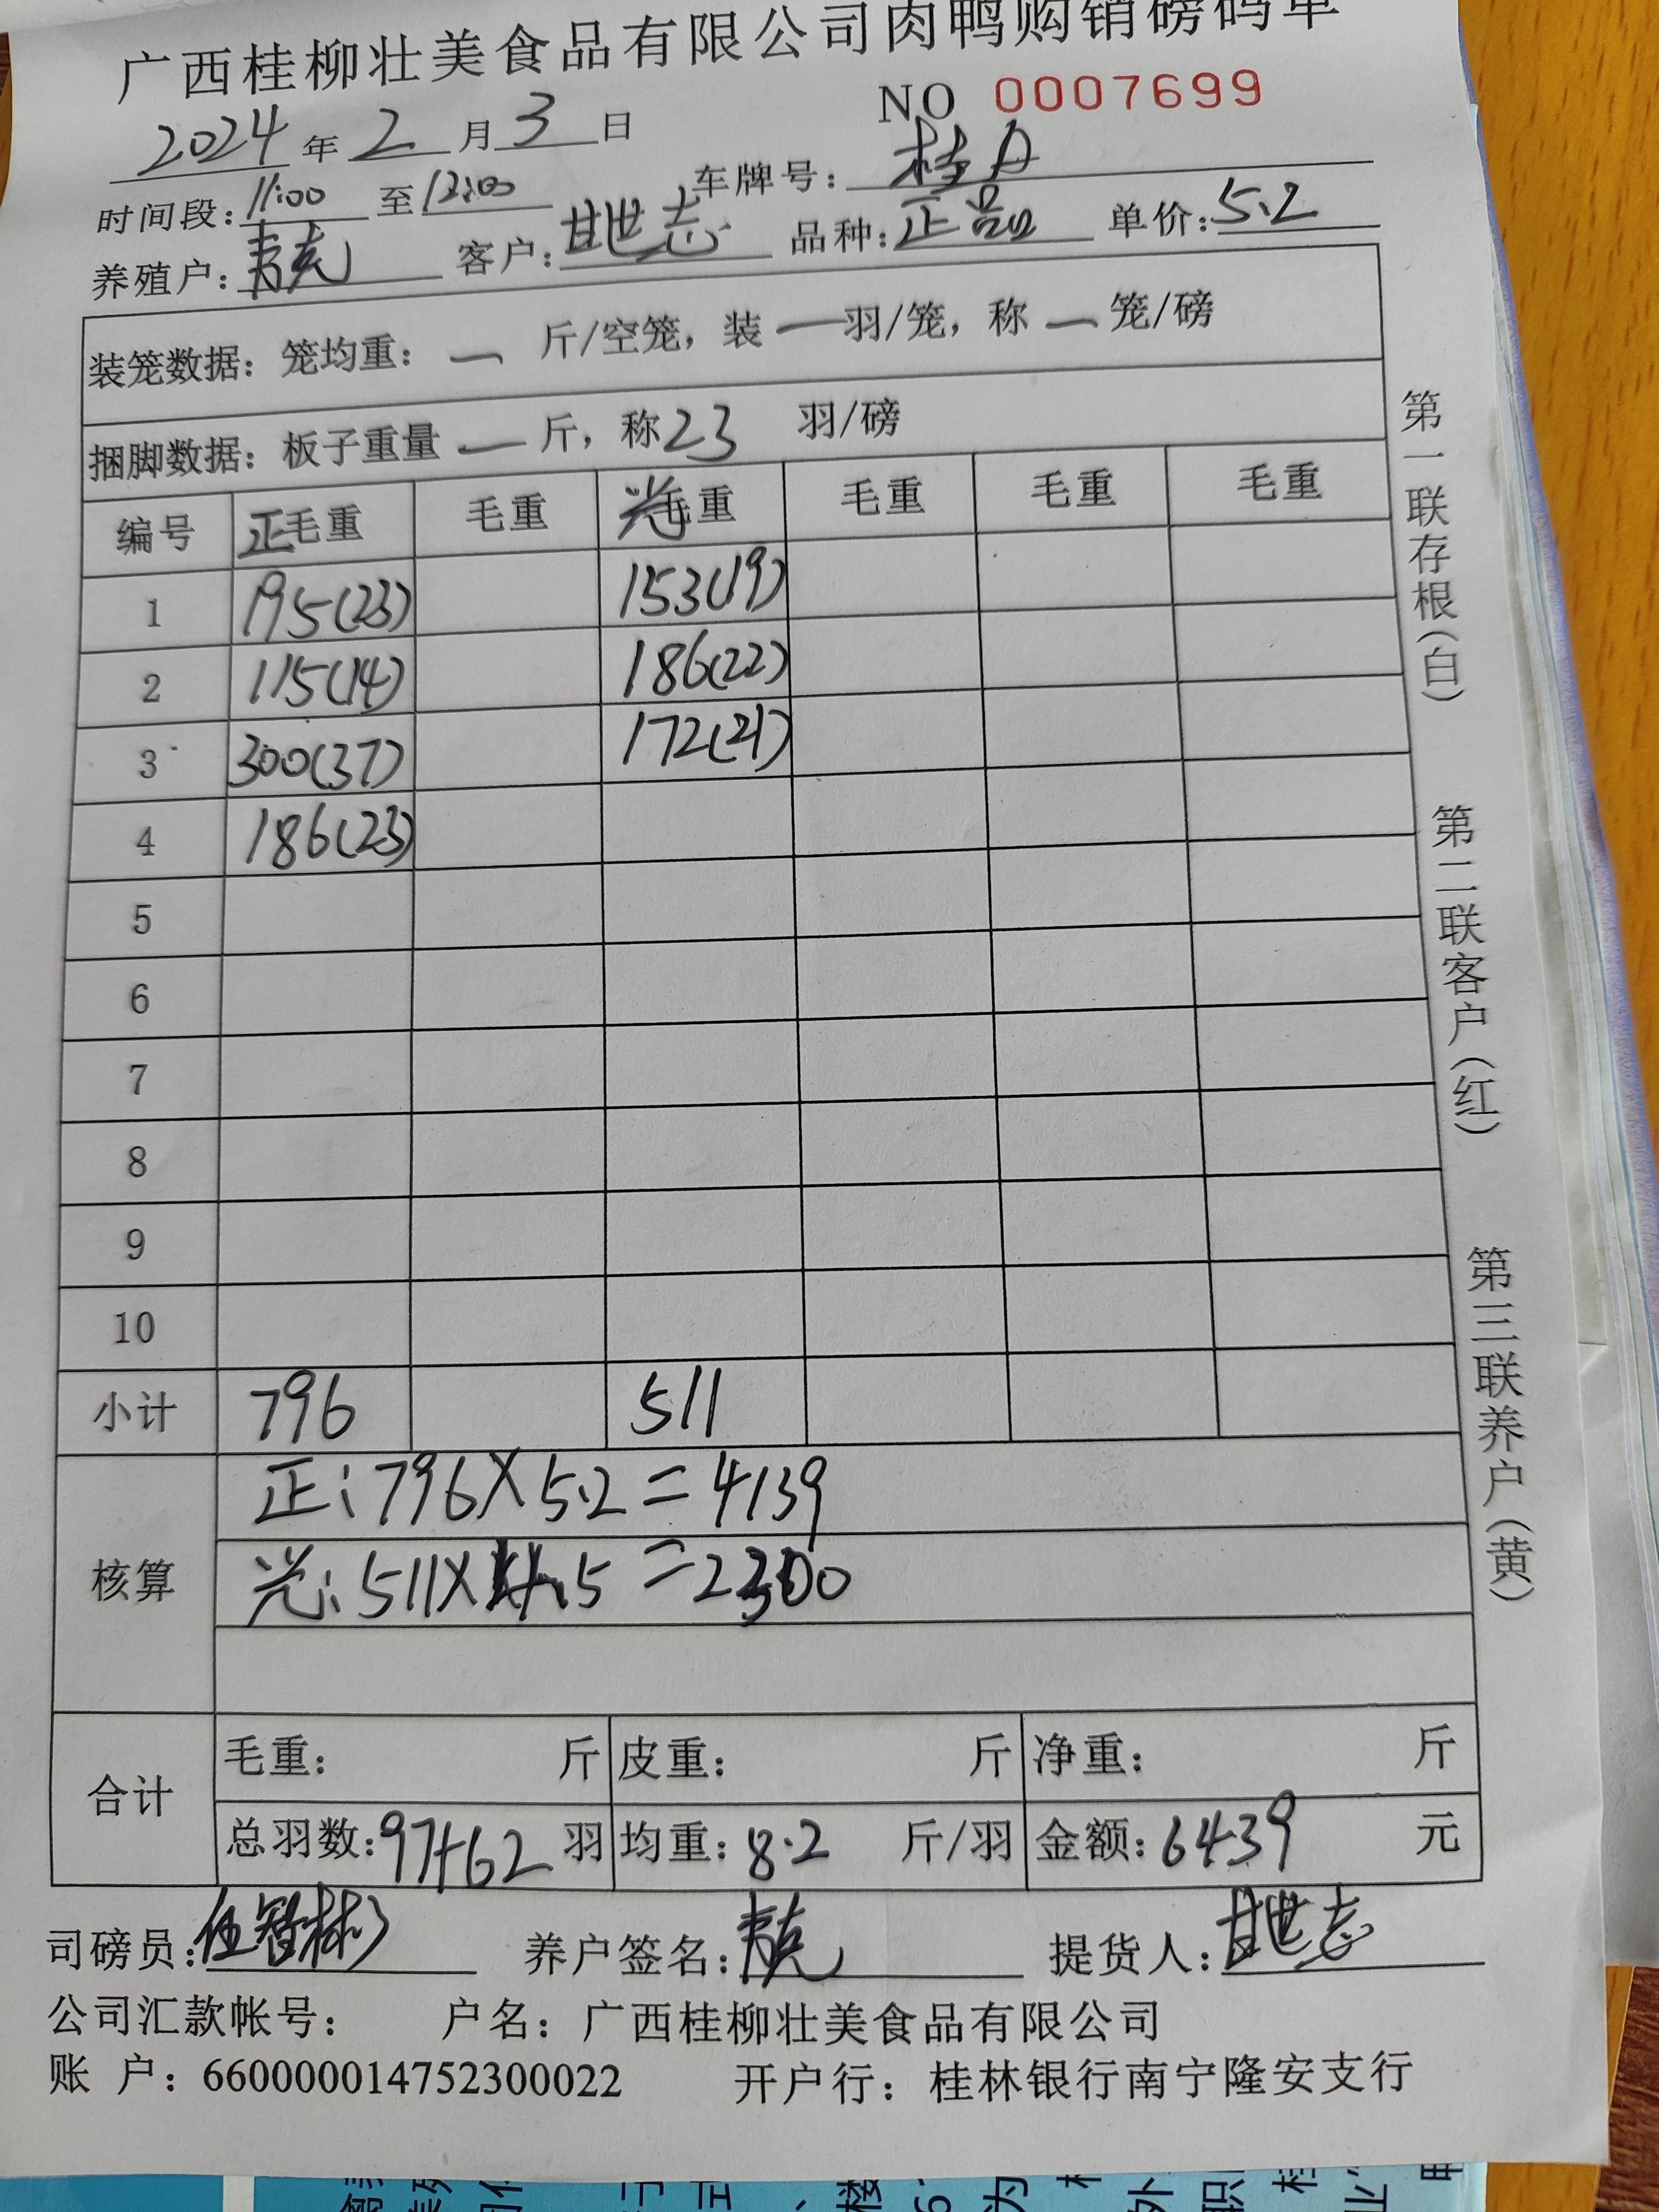 广西桂柳壮美食品有限公司肉鸭购销磅码单
NO 0007699
2024年2月3日
时间段:11:00至12:00 车牌号:桂A
养殖户: 客户:甘世志 品种:正品 单价:5.2
装笼数据:笼均重:— 斤/空笼,装—羽/笼,称—笼/磅
捆脚数据:板子重量—斤,称23 羽/磅
编号 正毛重 毛重 光毛重 毛重 毛重 毛重
1 195(23) 153(19)
2 115(14) 186(22)
3 300(37) 172(21)
4 186(23)
5
6
7
8
9
10
小计 796 511
核算 正:796×5.2=4139
光:511×4.5=2300
合计 毛重: 斤 皮重: 斤 净重: 斤
总羽数:97+62羽 均重:8.2 斤/羽 金额:6439 元
司磅员:伍智彬 养户签名: 提货人:甘世志
公司汇款帐号: 户名:广西桂柳壮美食品有限公司
账 户:660000014752300022 开户行:桂林银行南宁隆安支行
第一联存根(白)
第二联客户(红)
第三联养户(黄)